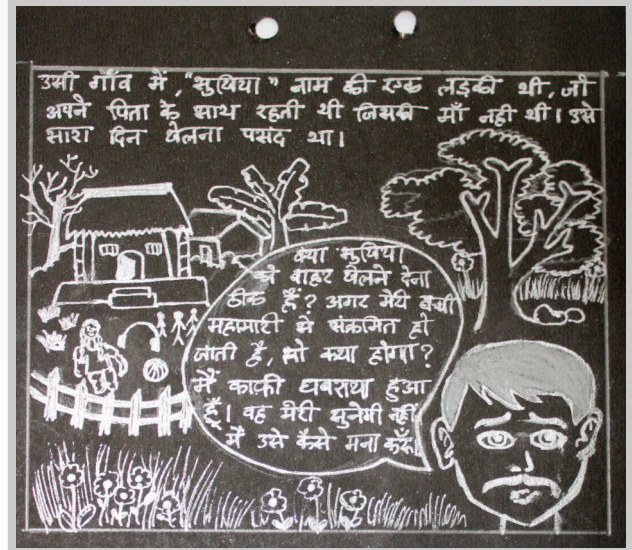 उसी गाँव में, "सुप्रिया" नाम की एक लड़की थी, जो
अपने पिता के साथ रहती थी जिसकी माँ नही थी। उसे
सारा दिन खेलना पसंद था।
क्या सुप्रिया
को बाहर खेलने देना
ठीक हैं? अगर मेरी बच्ची
महामारी से संक्रमित हो
जाती है, तो क्या होगा?
मैं काफी घबराया हुआ
हूँ। वह मेरी सुनेगी नहीं
मैं उसे कैसे मना करूँ।